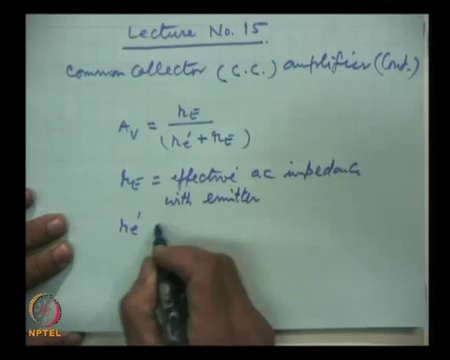 Lecture No. 15.
Common Collector (C.C.) amplifier (Cont.)
A_V = r_E / (r_e' + r_E)
r_E = effective ac impedance
with emitter
r_e'
NPTEL